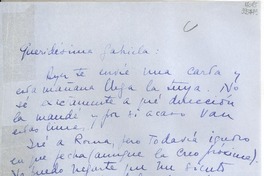 Queridísima Gabriela:
Ayer te envié una carta y
esta mañana llega la tuya. No
sé exactamente a qué dirección
la mandé y por si acaso van
estas líneas.
Iré a Roma, pero todavía ignoro
en qué fecha (aunque la creo próxima).
No puedo negarte que me siento